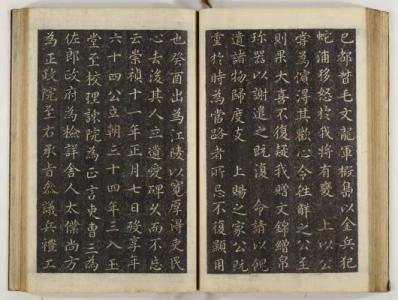 巳都督毛文龍軍椴島以金兵犯
蛇浦移怒於我將有釁 上以公
嘗爲儐得其歡心令往解之公至
則果大喜不復疑我贈文錦繒帛
珎器以謝遣之既復 命請以餽
遺諸物歸度支 上賜之家公既
於時爲當路者所忌不復顯用
也癸酉出爲江陵以寬厚得吏民
心去後其人立遺愛碑久而不忘
云崇禎十一年正月七日歿享年
六十四公立朝三十四年三入玉
堂至校理諫院爲正言吏曹三爲
佐郎政府爲檢詳舍人太僕尚方
爲正政院至右承旨叅議兵禮工